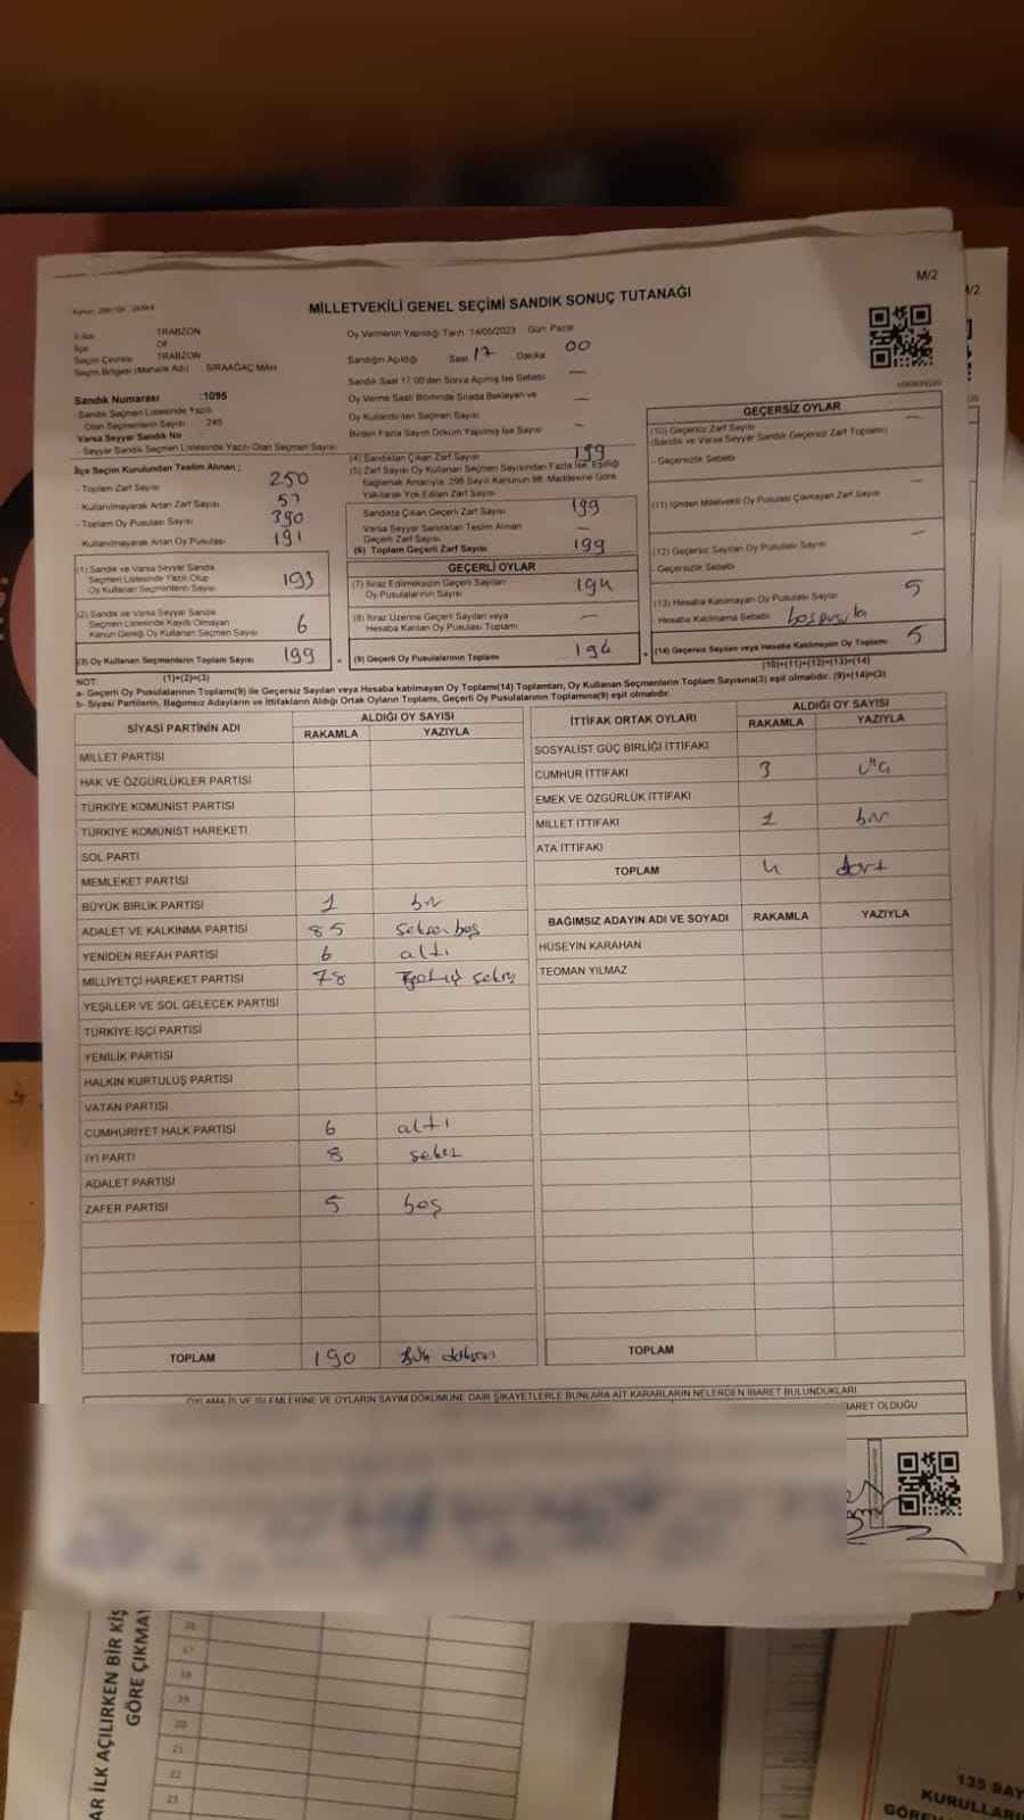 M/2
MİLLETVEKİLİ GENEL SEÇİMİ SANDIK SONUÇ TUTANAĞI
TRABZON
İlçe OF
Seçim Çevresi TRABZON
Seçim Bölgesi (Mahalle Adı) SIRAAĞAÇ MAH
Sandık Numarası :1095
- Sandık Seçmen Listesinde Yazılı
Olan Seçmenlerin Sayısı 245
Varsa Seyyar Sandık No
- Seyyar Sandık Seçmen Listesinde Yazılı Olan Seçmen Sayısı
İlçe Seçim Kurulundan Teslim Alınan ;
- Toplam Zarf Sayısı 250
- Kullanılmayarak Artan Zarf Sayısı 51
- Toplam Oy Pusulası Sayısı 390
- Kullanılmayarak Artan Oy Pusulası 191
(1) Sandık ve Varsa Seyyar Sandık
Seçmen Listesinde Yazılı Olup
Oy Kullanan Seçmenlerin Sayısı 193
(2) Sandık ve Varsa Seyyar Sandık
Seçmen Listesinde Kayıtlı Olmayan
Kanun Gereği Oy Kullanan Seçmen Sayısı 6
(3) Oy Kullanan Seçmenlerin Toplam Sayısı 199
(1)+(2)=(3)
Oy Vermenin Yapıldığı Tarih 14/05/2023 Gün Pazar
Sandığın Açıldığı Saat 17 Dakika 00
Sandık Saat 17:00'den Sonra Açılmış İse Sebebi —
Oy Verme Saati Bitiminde Sırada Bekleyen ve —
Oy Kullandırılan Seçmen Sayısı
Birden Fazla Sayım Döküm Yapılmış İse Sayısı —
(4) Sandıktan Çıkan Zarf Sayısı 199
(5) Zarf Sayısı Oy Kullanan Seçmen Sayısından Fazla İse, Eşitliği
Sağlamak Amacıyla; 298 Sayılı Kanunun 98. Maddesine Göre
Yakılarak Yok Edilen Zarf Sayısı
Sandıkta Çıkan Geçerli Zarf Sayısı 199
Varsa Seyyar Sandıktan Teslim Alınan
Geçerli Zarf Sayısı —
(6) Toplam Geçerli Zarf Sayısı 199
GEÇERLİ OYLAR
(7) İtiraz Edilmeksizin Geçerli Sayılan
Oy Pusulalarının Sayısı 194
(8) İtiraz Üzerine Geçerli Sayılan veya
Hesaba Katılan Oy Pusulası Toplamı —
(9) Geçerli Oy Pusulalarının Toplamı 194
GEÇERSİZ OYLAR
(10) Geçersiz Zarf Sayısı —
(Sandık ve Varsa Seyyar Sandık Geçersiz Zarf Toplamı)
- Geçersizlik Sebebi
(11) İçinden Milletvekili Oy Pusulası Çıkmayan Zarf Sayısı —
(12) Geçersiz Sayılan Oy Pusulası Sayısı —
Geçersizlik Sebebi
(13) Hesaba Katılmayan Oy Pusulası Sayısı 5
Hesaba Katılmama Sebebi boş pusula
(14) Geçersiz Sayılan veya Hesaba Katılmayan Oy Toplamı 5
(10)+(11)+(12)+(13)=(14)
NOT:
a- Geçerli Oy Pusulalarının Toplamı(9) ile Geçersiz Sayılan veya Hesaba katılmayan Oy Toplamı(14) Toplamları, Oy Kullanan Seçmenlerin Toplam Sayısına(3) eşit olmalıdır. (9)+(14)=(3)
b- Siyasi Partilerin, Bağımsız Adayların ve İttifakların Aldığı Ortak Oyların Toplamı, Geçerli Oy Pusulalarının Toplamına(9) eşit olmalıdır.
SİYASİ PARTİNİN ADI ALDIĞI OY SAYISI
RAKAMLA YAZIYLA
MİLLET PARTİSİ
HAK VE ÖZGÜRLÜKLER PARTİSİ
TÜRKİYE KOMÜNİST PARTİSİ
TÜRKİYE KOMÜNİST HAREKETİ
SOL PARTİ
MEMLEKET PARTİSİ
BÜYÜK BİRLİK PARTİSİ 1 bir
ADALET VE KALKINMA PARTİSİ 85 seksen beş
YENİDEN REFAH PARTİSİ 6 altı
MİLLİYETÇİ HAREKET PARTİSİ 78 yetmiş sekiz
YEŞİLLER VE SOL GELECEK PARTİSİ
TÜRKİYE İŞÇİ PARTİSİ
YENİLİK PARTİSİ
HALKIN KURTULUŞ PARTİSİ
VATAN PARTİSİ
CUMHURİYET HALK PARTİSİ 6 altı
İYİ PARTİ 8 sekiz
ADALET PARTİSİ
ZAFER PARTİSİ 5 beş
TOPLAM 190 yüz doksan
İTTİFAK ORTAK OYLARI ALDIĞI OY SAYISI
RAKAMLA YAZIYLA
SOSYALİST GÜÇ BİRLİĞİ İTTİFAKI
CUMHUR İTTİFAKI 3 üç
EMEK VE ÖZGÜRLÜK İTTİFAKI
MİLLET İTTİFAKI 1 bir
ATA İTTİFAKI
TOPLAM 4 dört
BAĞIMSIZ ADAYIN ADI VE SOYADI RAKAMLA YAZIYLA
HÜSEYİN KARAHAN
TEOMAN YILMAZ
TOPLAM
OYLAMA İŞ VE İŞLEMLERİNE VE OYLARIN SAYIM DÖKÜMÜNE DAİR ŞİKAYETLERLE BUNLARA AİT KARARLARIN NELERDEN İBARET BULUNDUKLARI
İBARET OLDUĞU
AR İLK AÇILIRKEN BİR KİŞ
GÖRE ÇIKMA
16
17
18
19
20
21
22
23
135 SAY
KURULLAR
GÖREV